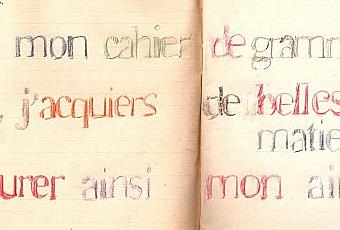 mon cahier de gramm
, j'acquiers de belles
matie
urer ainsi mon ai